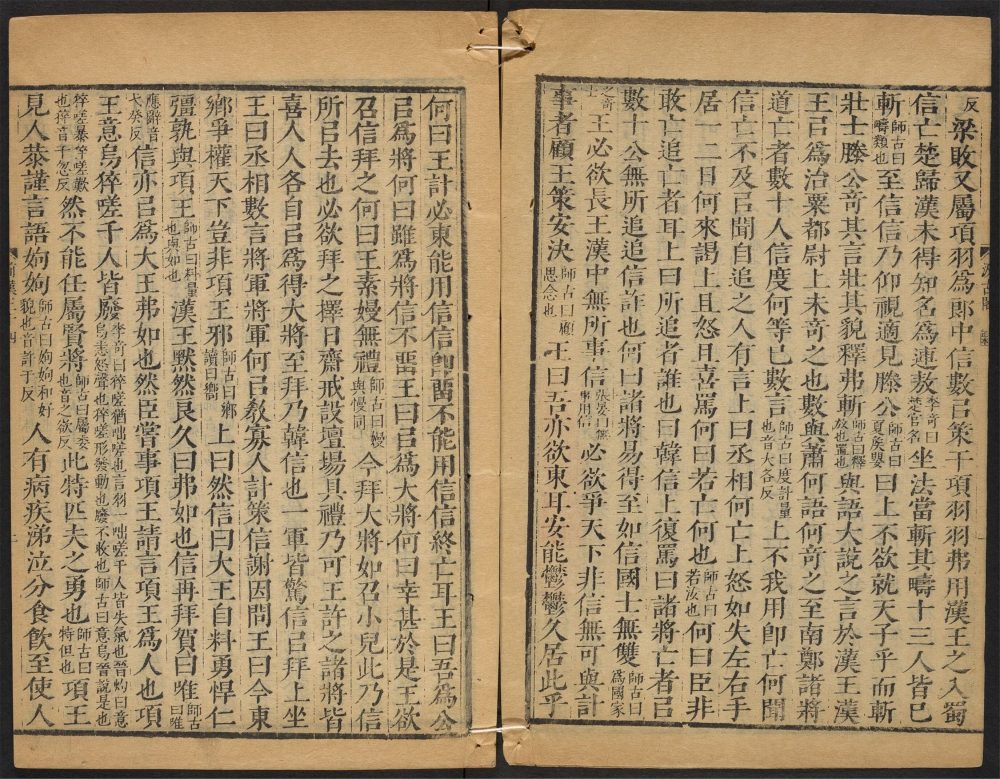 反梁敗又屬項羽爲郎中信數㠯策干項羽羽弗用漢王之入蜀
信亡楚歸漢未得知名爲連敖李奇曰楚官名坐法當斬其疇十三人皆已
斬師古曰疇類也至信信乃仰視適見滕公師古曰夏侯嬰曰上不欲就天子乎而斬
壯士滕公竒其言壯其貌釋弗斬師古曰釋放也置也與語大說之言於漢王漢
王㠯爲治粟都尉上未竒之也數與蕭何語何竒之至南鄭諸將
道亡者數十人信度何等已數言師古曰度計量也音大各反上不我用即亡何聞
信亡不及㠯聞自追之人有言上曰丞相何亡上怒如失左右手
居一二日何來謁上且怒且喜罵何曰若亡何也師古曰若汝也何曰臣非
敢亡追亡者耳上曰所追者誰也曰韓信上復罵曰諸將亡者㠯
數十公無所追追信詐也何曰諸將易得至如信國士無雙師古曰爲國家
之竒士王必欲長王漢中無所事信張晏曰無事用信必欲爭天下非信無可與計
事者顧王策安決師古曰顧思念也王曰吾亦欲東耳安能鬱鬱久居此乎
何曰王計必東能用信信卽畱不能用信信終亡耳王曰吾爲公
㠯爲將何曰雖爲將信不畱王曰㠯爲大將何曰幸甚於是王欲
召信拜之何曰王素嫚無禮師古曰嫚與慢同今拜大將如召小兒此乃信
所㠯去也必欲拜之擇日齋戒設壇場具禮乃可王許之諸將皆
喜人人各自㠯爲得大將至拜乃韓信也一軍皆驚信㠯拜上坐
王曰丞相數言將軍將軍何㠯敎寡人計策信謝因問王曰今東
鄉爭權天下豈非項王邪師古曰鄉讀曰嚮上曰然信曰大王自料勇悍仁
彊孰與項王師古曰料量也與如也漢王黙然良久曰弗如也信再拜賀曰唯師古曰唯
應辭音弋癸反信亦㠯爲大王弗如也然臣嘗事項王請言項王爲人也項
王意烏猝嗟千人皆廢李奇曰猝嗟猶咄嗟也言羽一咄嗟千人皆失氣也晉灼曰意烏恚怒聲也猝嗟形發動也廢不收也師古曰意烏晉說是也
猝嗟暴猝嗟歎也猝音千忽反然不能任屬賢將師古曰屬委也音之欲反此特匹夫之勇也師古曰特但也項王
見人恭謹言語姁姁師古曰姁姁和好貌也音許于反人有病疾涕泣分食飲至使人
汲古閣